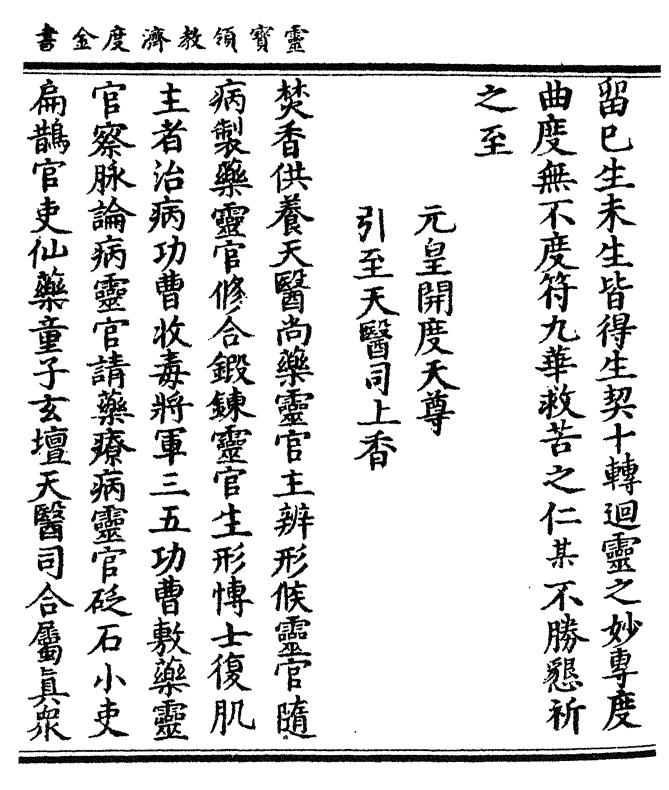 靈寶領教濟度金書
留已生未生皆得生契十轉迴靈之妙專度
曲度無不度符九華救苦之仁某不勝懇祈
之至
元皇開度天尊
引至天醫司上香
焚香供養天醫尚藥靈官主辨形候靈官隨
病製藥靈官修合鍛鍊靈官生形愽士復肌
主者治病功曹收毒將軍三五功曹敷藥靈
官察脉論病靈官請藥療病靈官砭石小吏
扁鵲官吏仙藥童子玄壇天醫司合屬眞衆